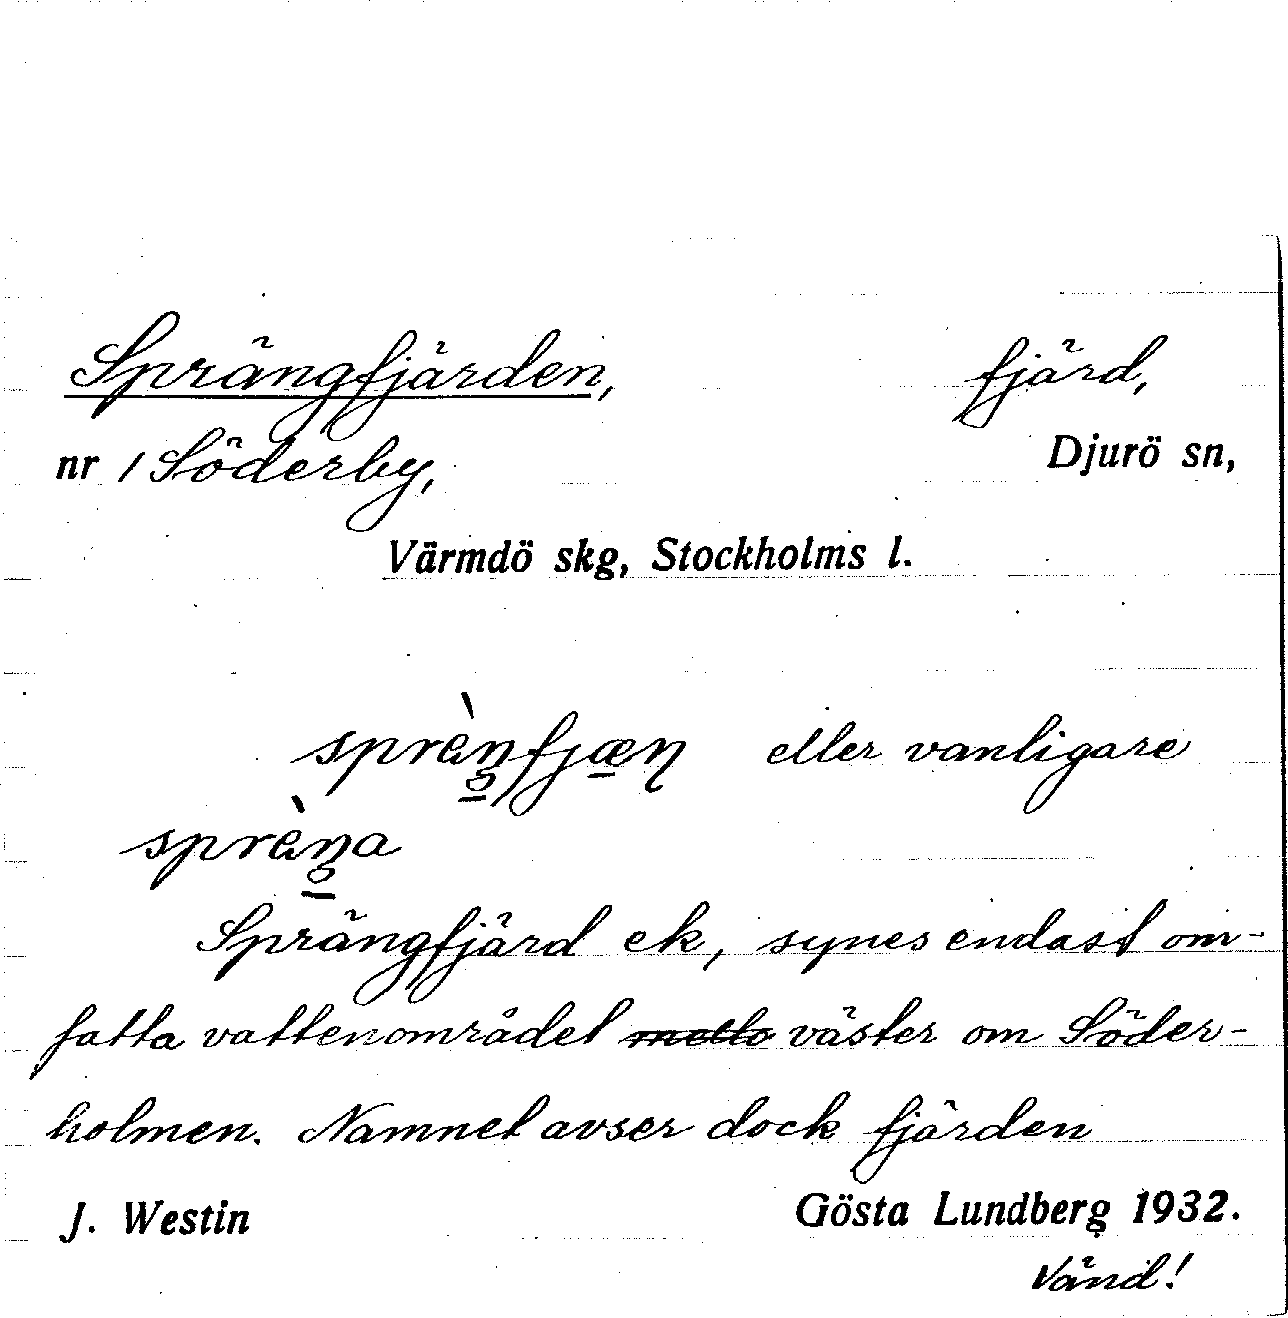 Sprängfjärden, fjärd,
nr 1 Söderby, Djurö sn,
Värmdö skg, Stockholms l.
sprèŋfjæṇ eller vanligare
sprèŋa
Sprängfjärd ek, synes endast om-
fatta vattenområdet mello väster om Söder-
holmen. Namnet avser dock fjärden
J. Westin Gösta Lundberg 1932.
Vänd!